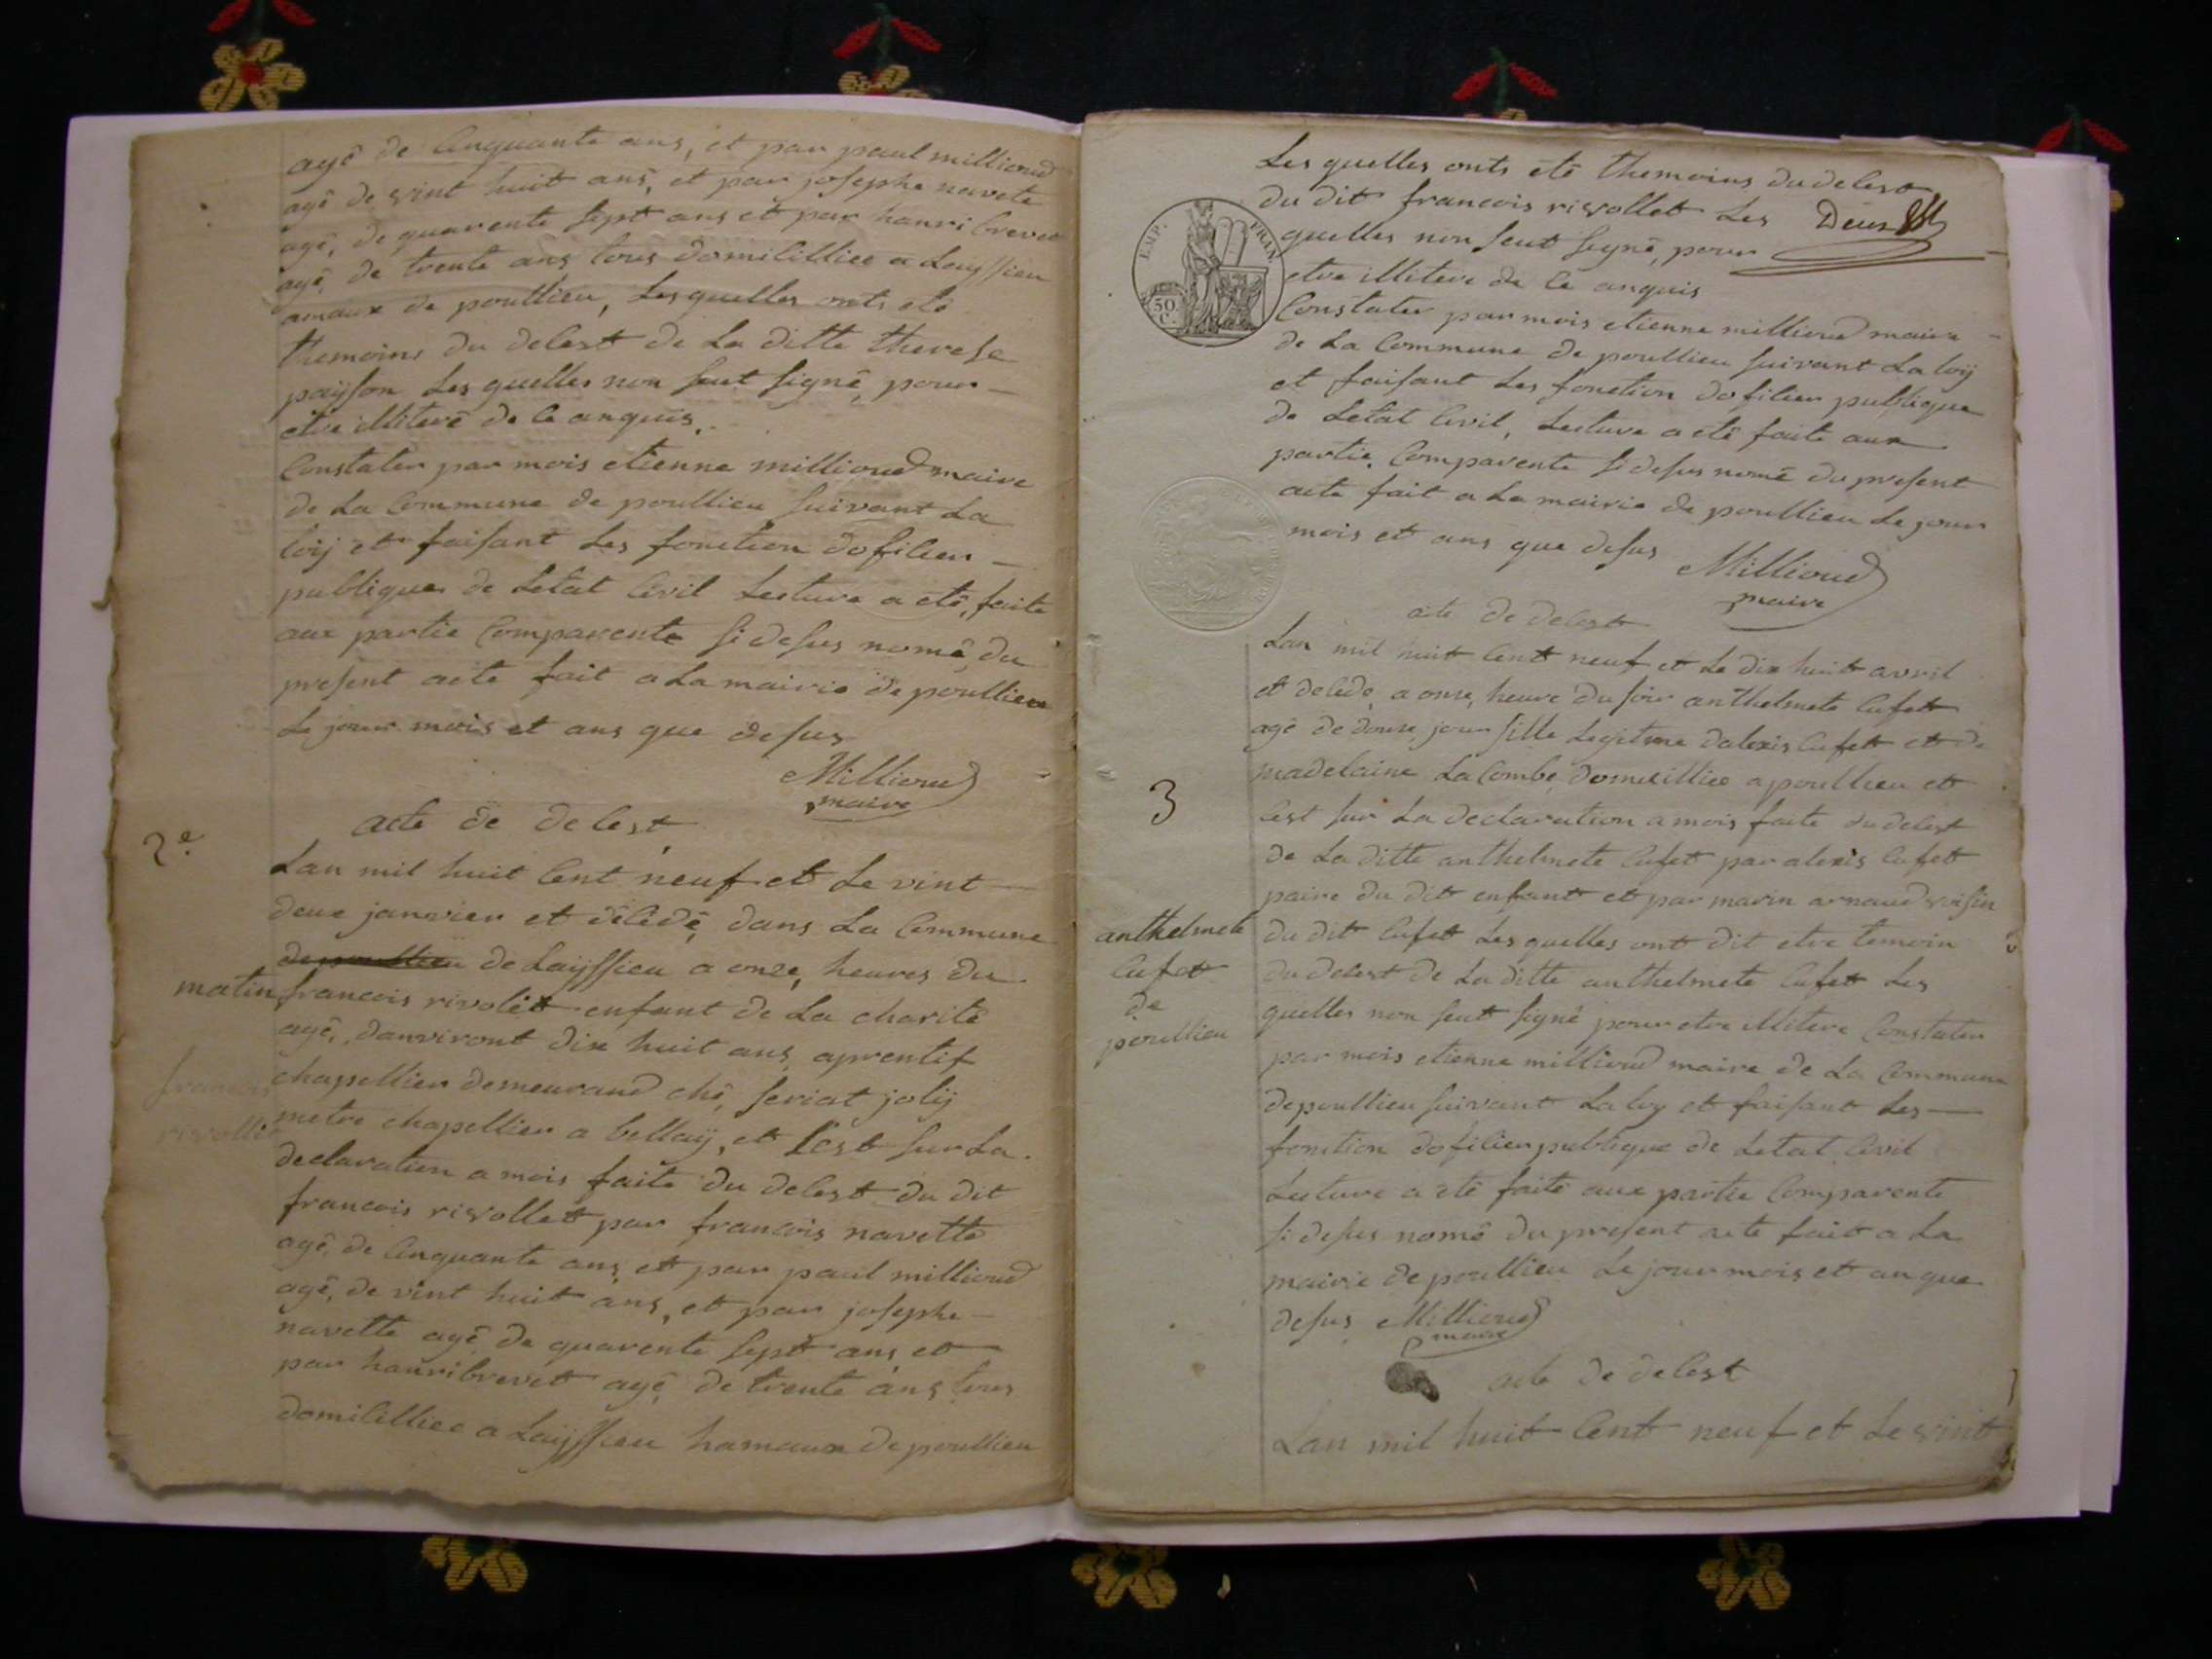 agé de Cinquante ans, et par paul milliond
agé de vint huit ans, et par josephe navete
agé, de quarente sept ans et par hanri brevet
agé, de trente ans tous domicilliee a Layssieu
amaux de poullieu, Les quelles onts eté
themoins du delest de La ditte therese
payson Les quelles non seut signé, pour
etre illiteré de ce anquis.
Constater par mois etienne millioud maire
de La Commune de poullieu suivant La
loij et faisant Les fonction dofilier
publique de Letat Civil Lecture a eté, faite
aux partie Comparente si desus nomé, du
present acte fait a La mairie de poullieu
Le jour mois et ans que desus
Millioud
maire
2e
acte de delest
Lan mil huit Cent neuf et Le vint
deux janvier et decedé, dans La Commune
de poullieu de Laijssieu a onze, heures du
matin francois rivolett enfant de La charité
agé, danviront dix huit ans aprentif
chapellier demeurand ché, feriat jolij
francois
rivollet
metre chapellier a bellaij, et Cest sur La
declaration a mois faite du delest du dit
francois rivollett par francois navette
agé, de Cinquante ans et par paul millioud
agé, de vint huit ans, et par josephe
navette agé de quarente sept ans et
par hanribrevet agé, de trente ans tous
domicilliee a Laijssieu hamaux de poullieu
Les quelles onts eté themoins du delest
du dit francois rivollett Les Deux
quelles non seut segné, pour
etre illitere de ce anquis
EMP. FRAN
50
C.
Constater par mois etienne millioud maire
de La Commune de poullieu suivant La loij
et faisant Les fonction dofilier publique
de Letat Civil, Lecture a eté faite aux
partie Comparente si desus nomé du present
acte fait a La mairie de poullieu Le jour
mois et ans que desus
Millioud
maire
acte de delest
Lan mil huit Cent neuf et Le dix huit avril
et decedé, a onze, heure du soir anthelmete Cufett
agé de douze jour fille Legitime dalexis Cufett et de
madelaine La Combe, domicilliee a poullieu et
3
Cest sur La declaration a mois faite du delest
de La ditte anthelmete Cufett par alexis Cufett
paire du dit enfant et par marin arnaud voisin
anthelmete
Cufett
de
poullieu
du dit Cufett Les quelles ont dit etre temoin
du delest de La ditte anthelmete Cufett Les
quelles non seut signé pour etre illitere Constater
par mois etienne millioud maire de La Commune
de poullieu suivant La loy et faisant Les
fonction dofilier publique de Letat Civil
Lecture a eté faite aux partie Comparente
si desus nomé du present acte fait a La
mairie de poullieu Le jour mois et an que
desus Millioud
maire
acte de delest
Lan mil huit Cent neuf et Le vint